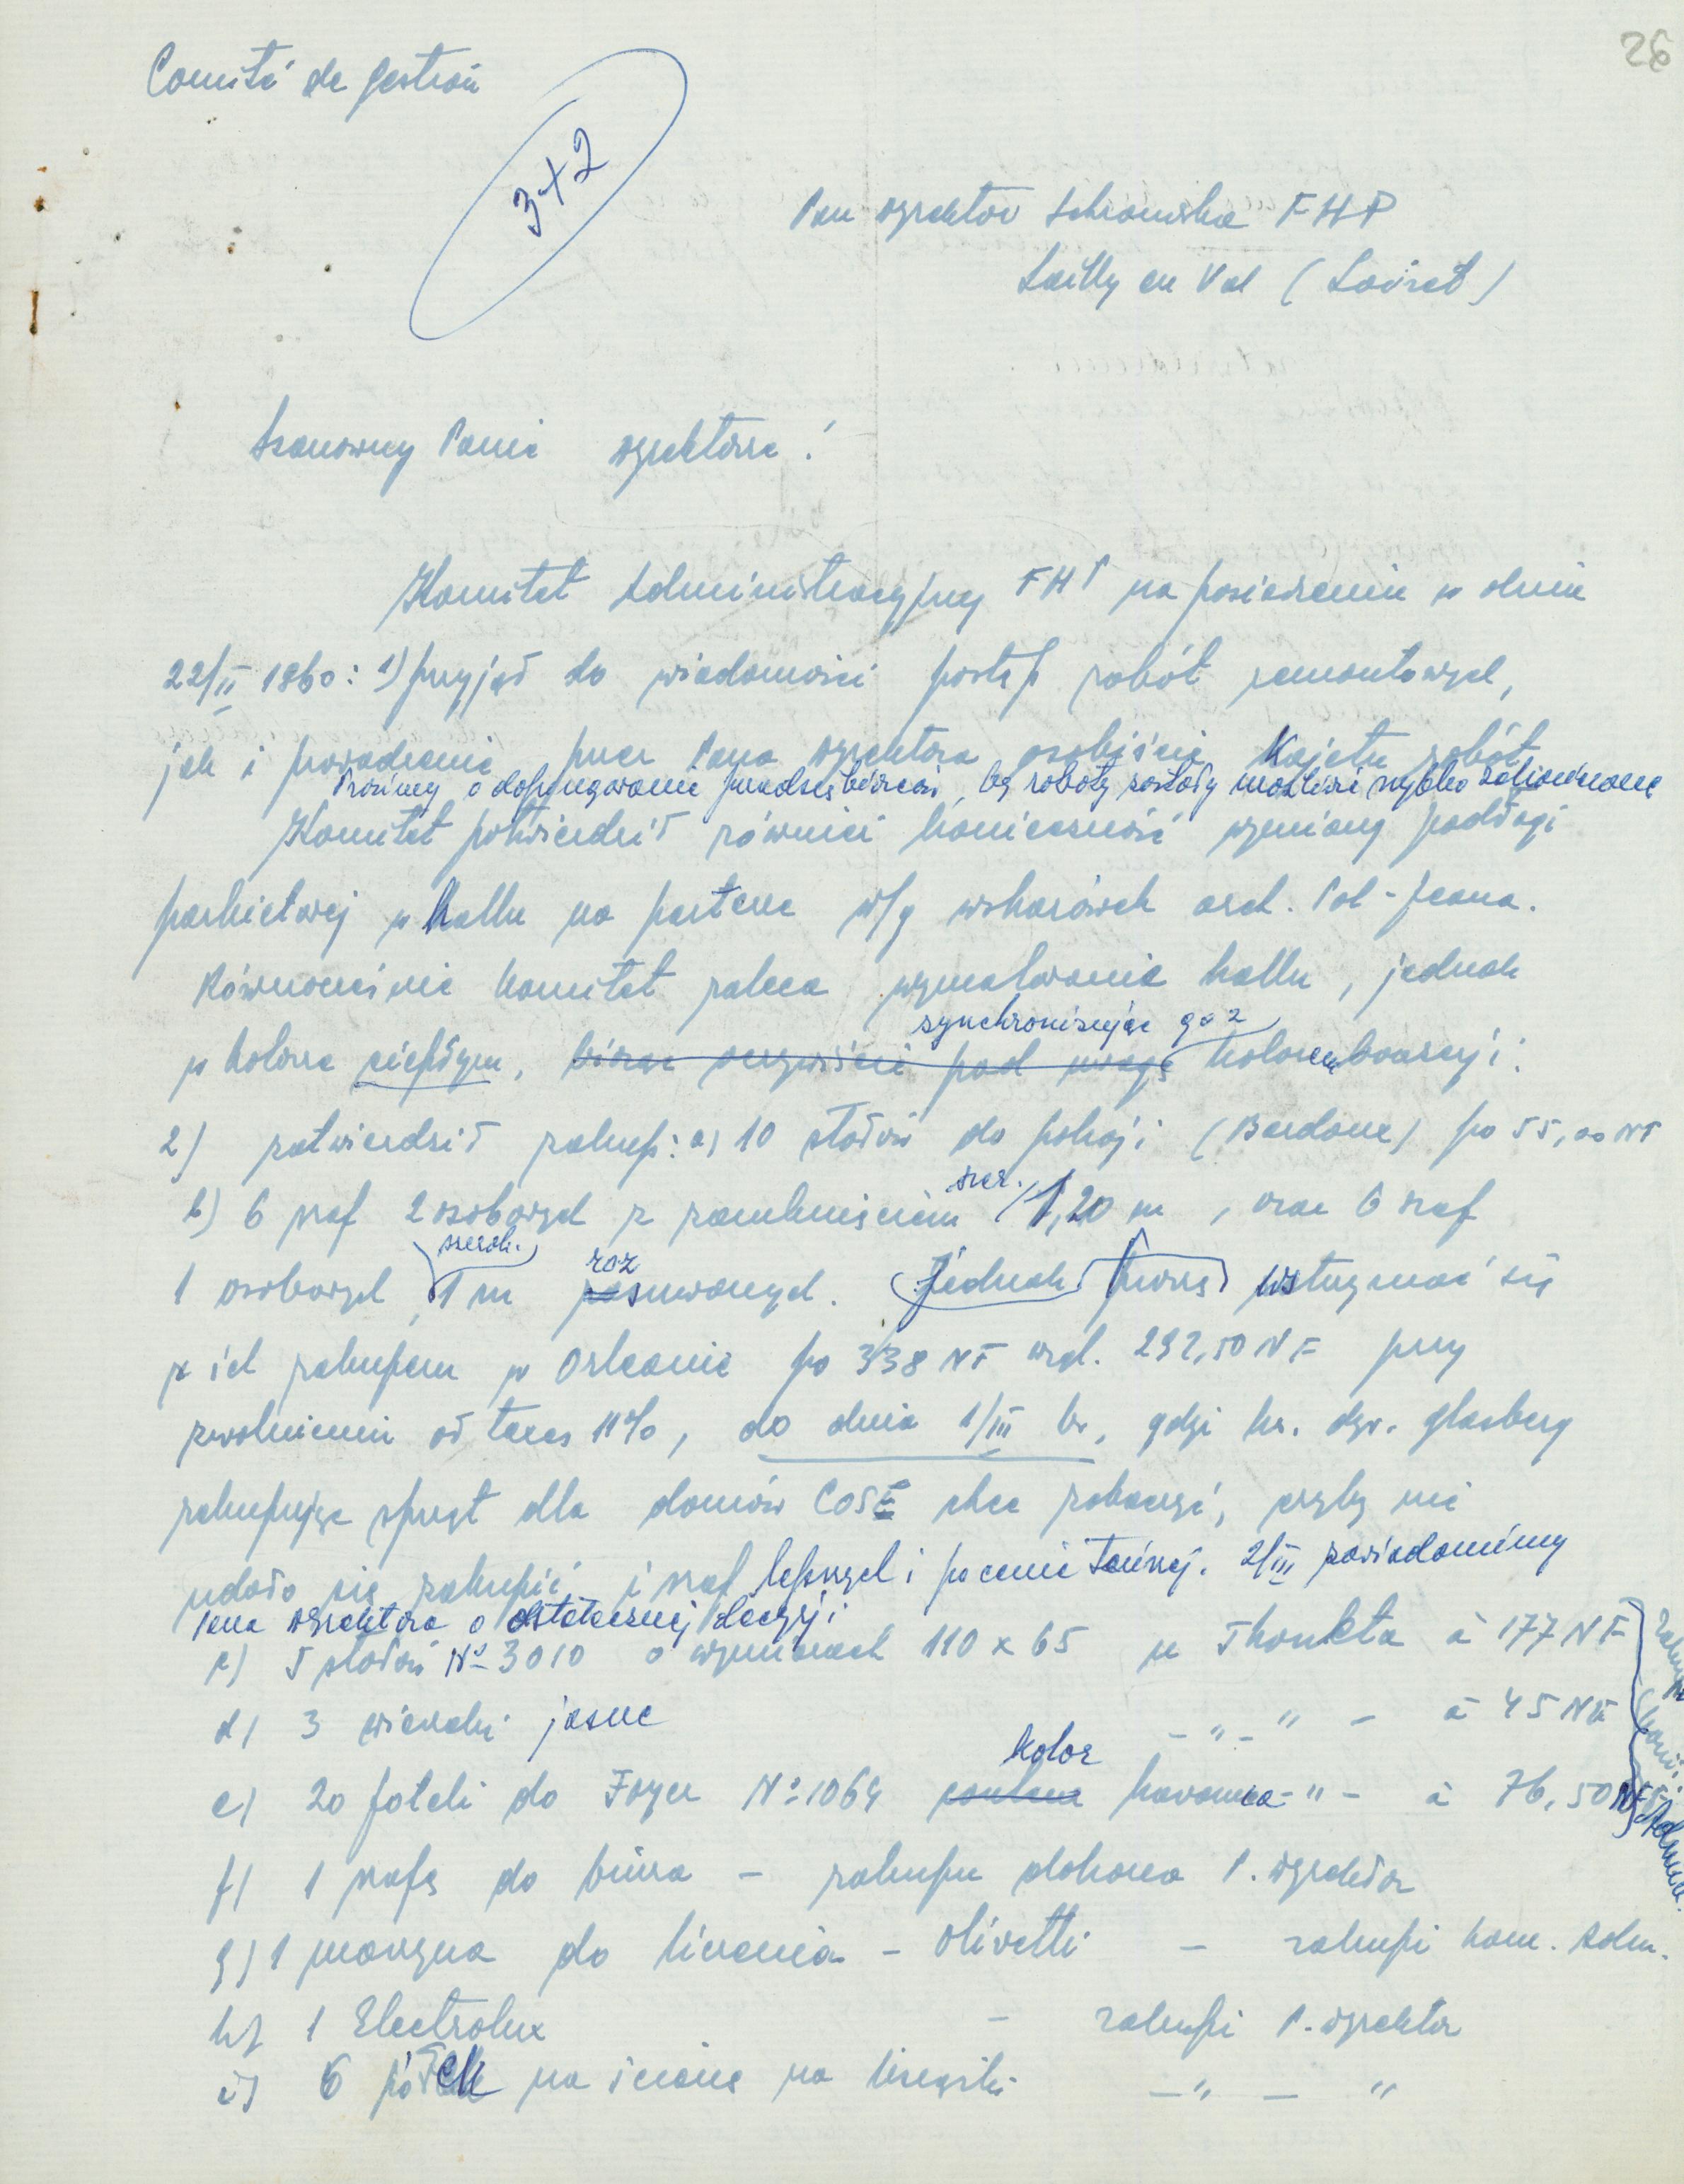 26
Comité de gestion
3+2
Pan Dyrektor Schroniska FHP
Lailly en Val (Loiret)
Szanowny Panie Dyrektorze!
Komitet Administracyjny FHP na posiedzeniu w dniu
22/II 1960: 1) przyjął do wiadomości postęp robót remontowych,
jak i prowadzenie przez Pana Dyrektora osobiście Kajetu robót
Prosimy o dopingowanie przedsiębiorców, by roboty zostały możliwie szybko
Komitet potwierdził również konieczność wymiany podłogi
parkietowej w hallu na parterze w/g wskazówek arch. Pol-Jeana.
Równocześnie Komitet zaleca wymalowanie hallu, jednak
synchronizując go z
w kolorze ciepłym, biorąc oczywiście pod uwagę kolorem boazerji.
2) zatwierdził zakup: a) 10 stołów do pokoji (Bardoux) po 55,00 NF
b) 6 szaf 2 osobowych z zamknięciem szer. 1,20 m, oraz 6 szaf
1 osobowych, szerok. 1 m rozsuwanych. Jednak proszę wstrzymać się
z ich zakupem w Orleanie po 338 NF wzgl. 292,50 NF przy
zwolnieniu od taxes 11%, do dnia 1/III br, gdyż ks. dyr. Glasberg
zakupując sprzęt dla domów COSE chce zobaczyć, czyby nie
udało się zakupić i szaf lepszych i po cenie tańszej. 2/III zawiadomimy
Pana Dyrektora o ostatecznej decyzji
c) 5 stołów No 3010 o wymiarach 110 x 65 u Thoneta à 177 NF
d) 3 wieszaki jasne - " - " - à 45 NF
kolor
e) 20 foteli do Foyer No 1064 - " - à 76,50 NF
f) 1 szafę do biura - zakupu dokona P. Dyrektor
g) 1 maszyna do liczenia - Olivetti - zakupi Kom. Adm.
h) 1 Electrolux - zakupi P. Dyrektor
i) 6 półek na ścianę na książki - " - "